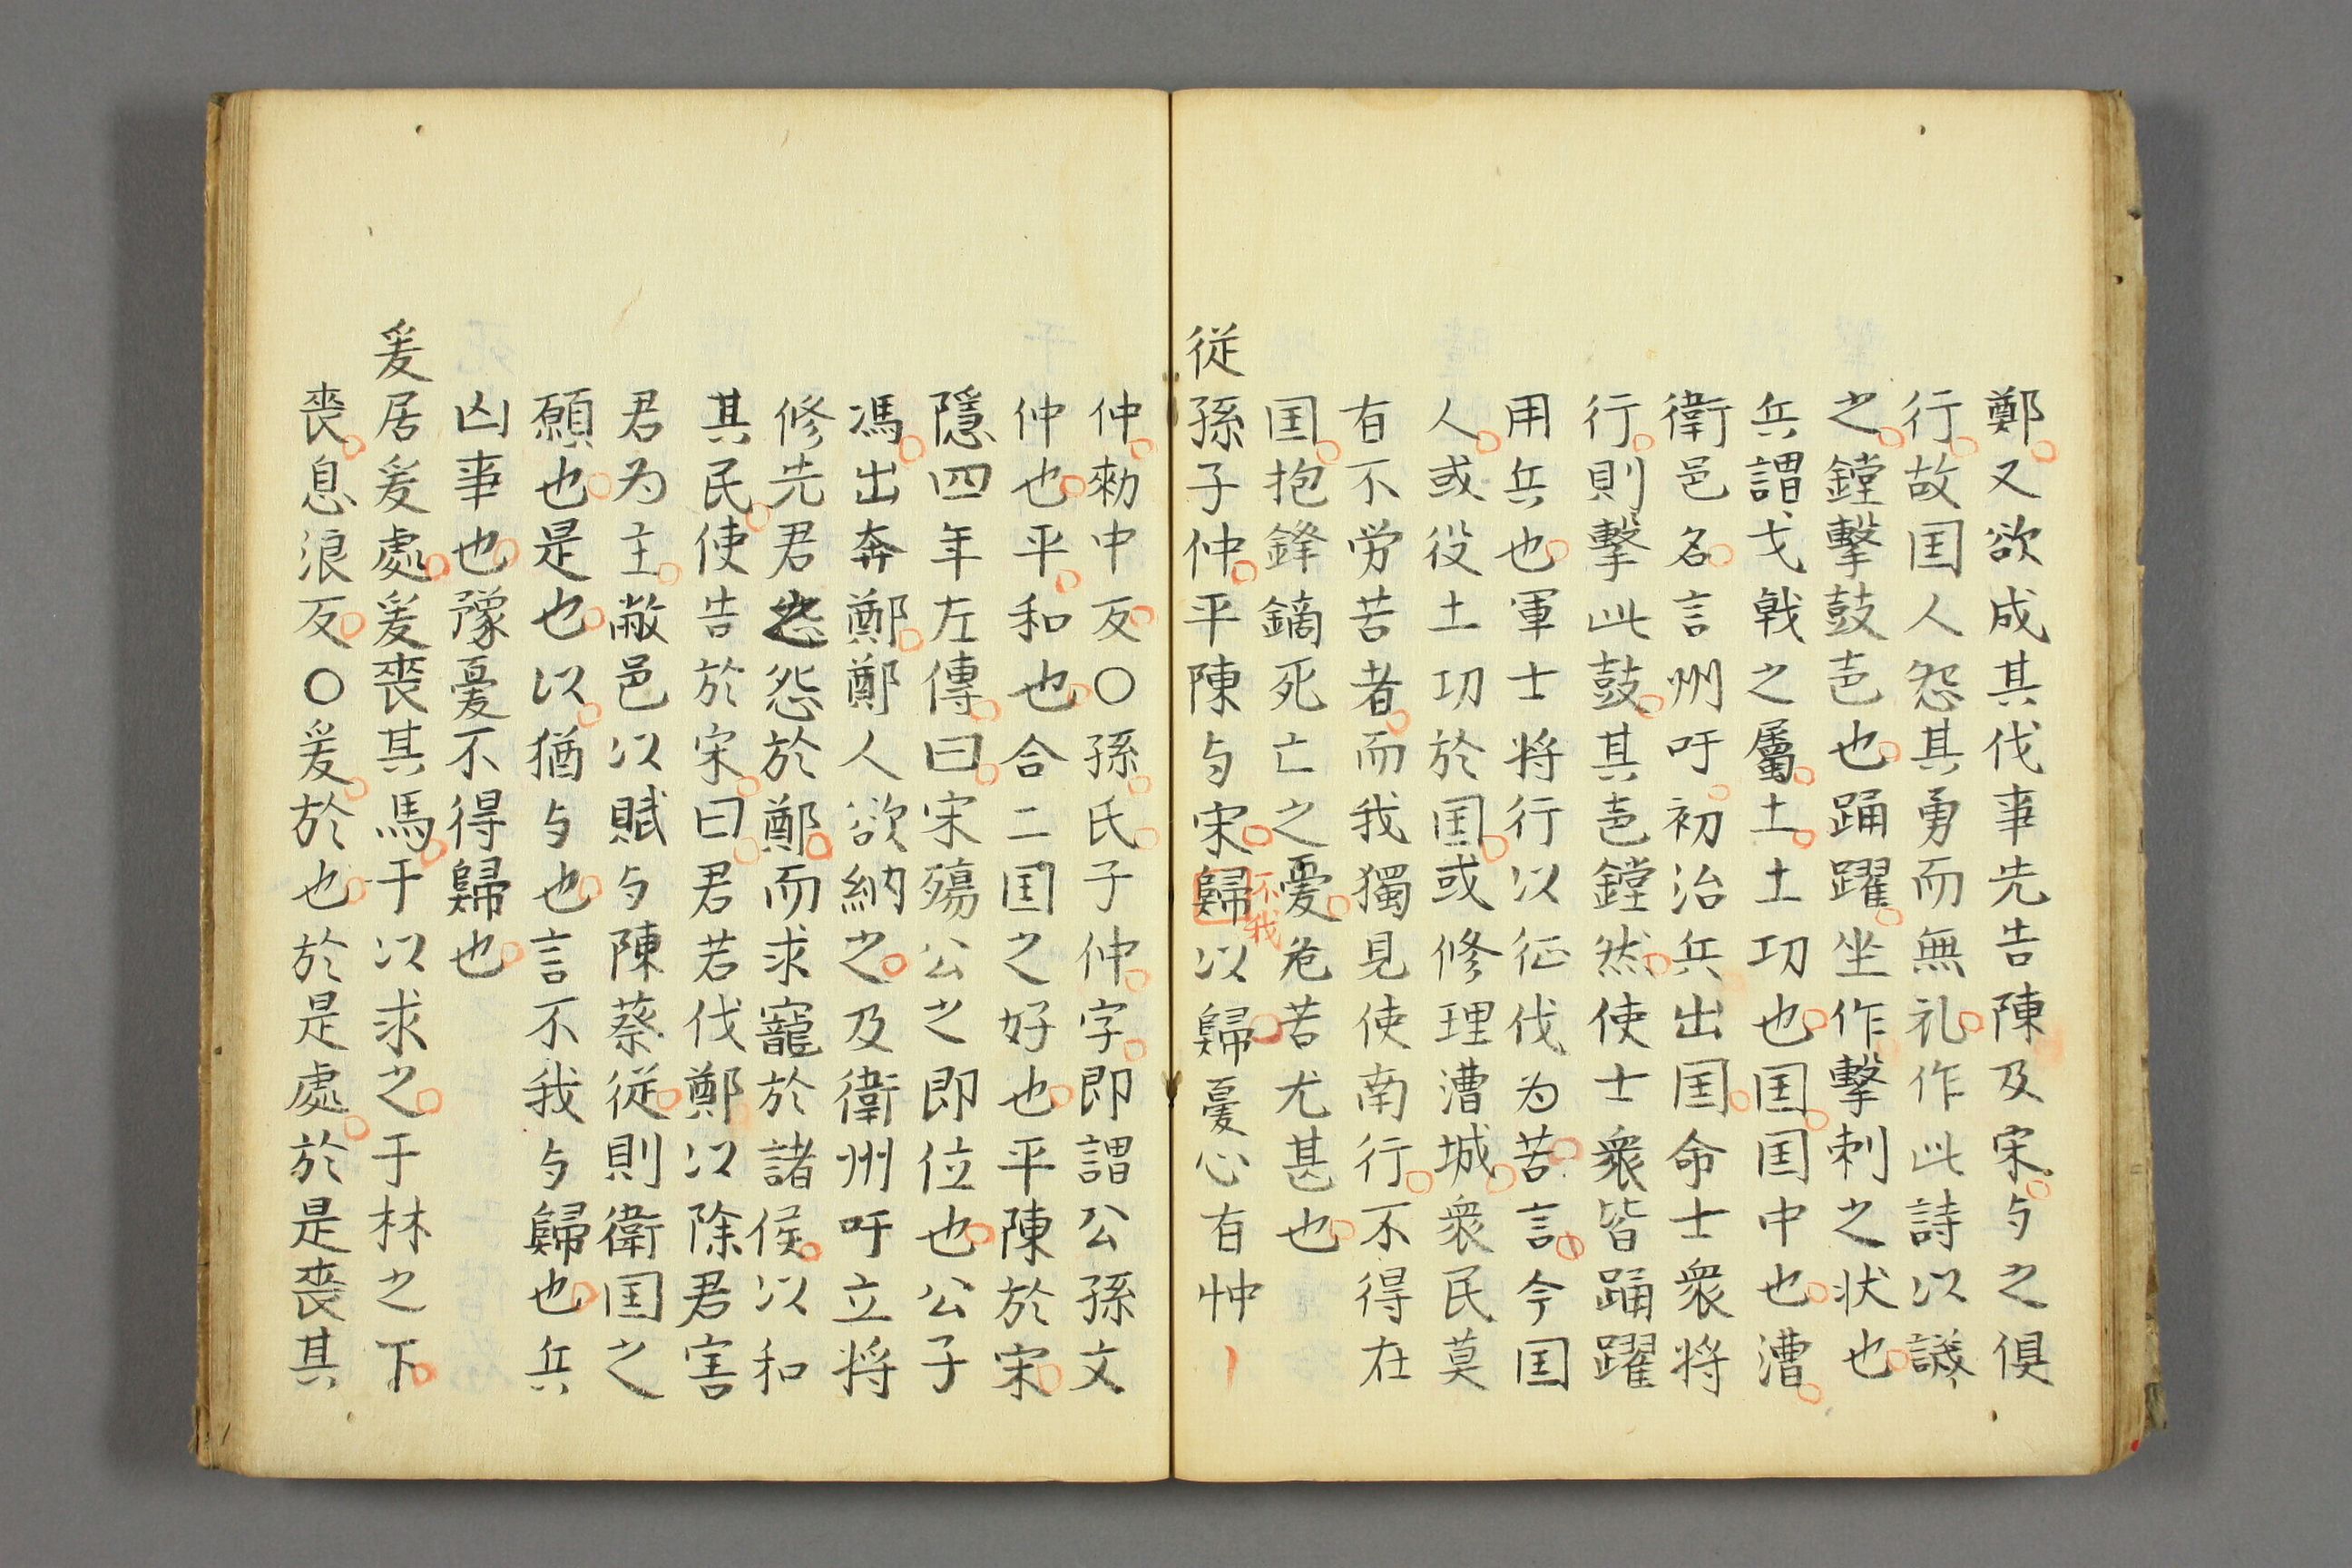 鄭又欲成其伐事先告陳及宋与之俱
行故囯人怨其勇而無礼作此詩以譏
之鏜擊鼓㐵也踊躍坐作擊刺之状也
兵謂戈戟之屬土土功也囯囯中也漕
衛邑名言州吁初治兵出囯命士衆将
行則擊此鼓其㐵鏜然使士衆皆踊躍
用兵也軍士将行以征伐为苦言今囯
人或役土功於囯或修理漕城衆民莫
有不労苦者而我獨見使南行不得在
囯抱鋒鏑死亡之憂危苦尤甚也
従孫子仲平陳与宋歸以歸憂心有忡
不我
仲勑中反〇孫氏子仲字即謂公孫文
仲也平和也合二囯之好也平陳於宋
隱四年左傳曰宋殤公之即位也公子
馮出奔鄭鄭人欲納之及衛州吁立将
修先君之怨於鄭而求寵於諸侯以和
其民使告於宋曰君若伐鄭以除君害
君为主敝邑以賦与陳蔡従則衛囯之
願也是也以猶与也言不我与歸也兵
凶事也豫憂不得歸也
爰居爰處爰喪其馬于以求之于林之下
喪息浪反〇爰於也於是處於是喪其